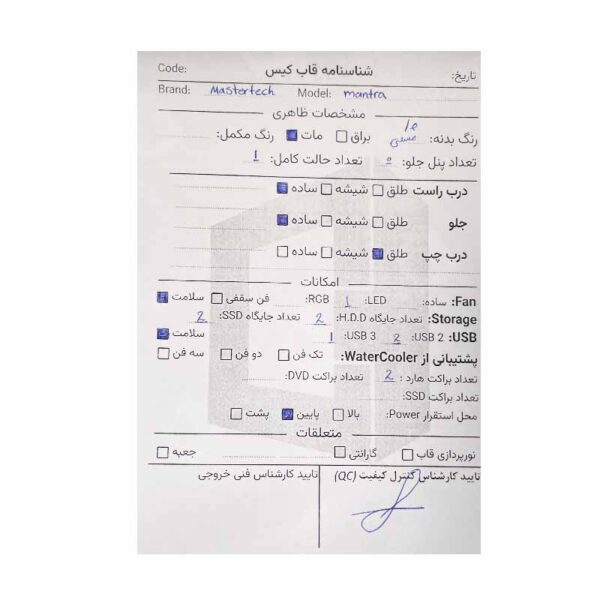 Code: شناسنامه قاب کیس تاریخ:
Brand: Mastertech Model: mantra
مشخصات ظاهری
رنگ بدنه: براق مات رنگ مکمل:
تعداد پنل جلو: 0 تعداد حالت کامل: 1
درب راست طلق شیشه ساده
جلو طلق شیشه ساده
درب چپ طلق شیشه ساده
امکانات
Fan: ساده: LED: 1 RGB: فن سقفی سلامت
Storage: تعداد جایگاه H.D.D: 2 تعداد جایگاه SSD: 2
USB: USB 2 2 USB 3: 1 سلامت
پشتیبانی از WaterCooler: تک فن دو فن سه فن
تعداد براکت هارد: 2 تعداد براکت DVD:
تعداد براکت SSD:
محل استقرار Power: بالا پایین پشت
متعلقات
نورپردازی قاب گارانتی جعبه
تایید کارشناس کنترل کیفیت (QC) تایید کارشناس فنی خروجی